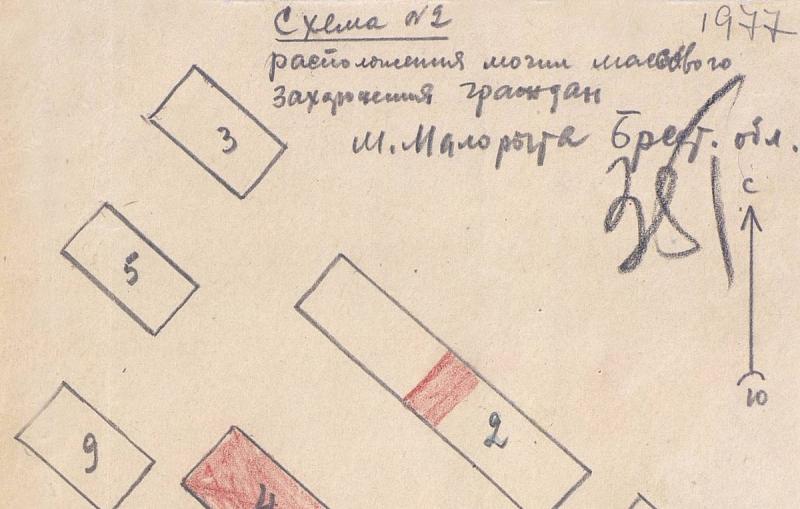 Схема №2
1977
расположения могил массового
захоронения граждан
м. Малорыта Брест. обл.
381
с
ю
3
5
2
9
4